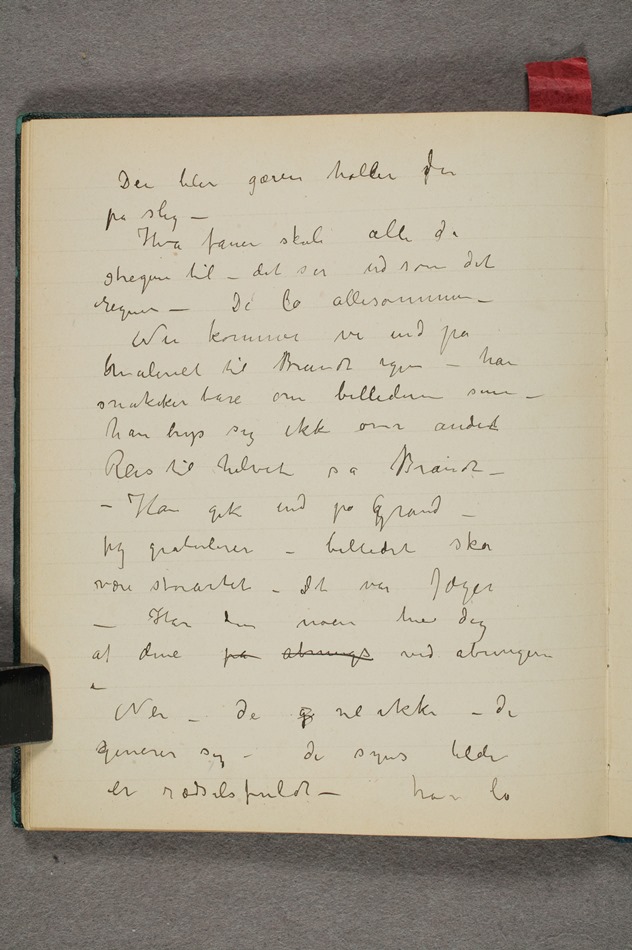 Der blir gæren holder du
på slig —
Hva faner skal alle de
stregene til — det ser ud som det
regner — De lo allesammen —
Nu kommer vi ind på
maleriet til Brandt igen — han
snakker bare om billederne sine —
han bryr seg ikke om andet
Reis til helvete sa Brandt —
— Han gik ind på Grand —
Jeg gratulerer — billedet skal
være storartet — Det var Jæger
— Har du noen med dig
af dine på åbnings ved åbningen
–
Nei — de g vil ikke — de
generer sig — de synes billedet
er rædselsfuldt — han lo